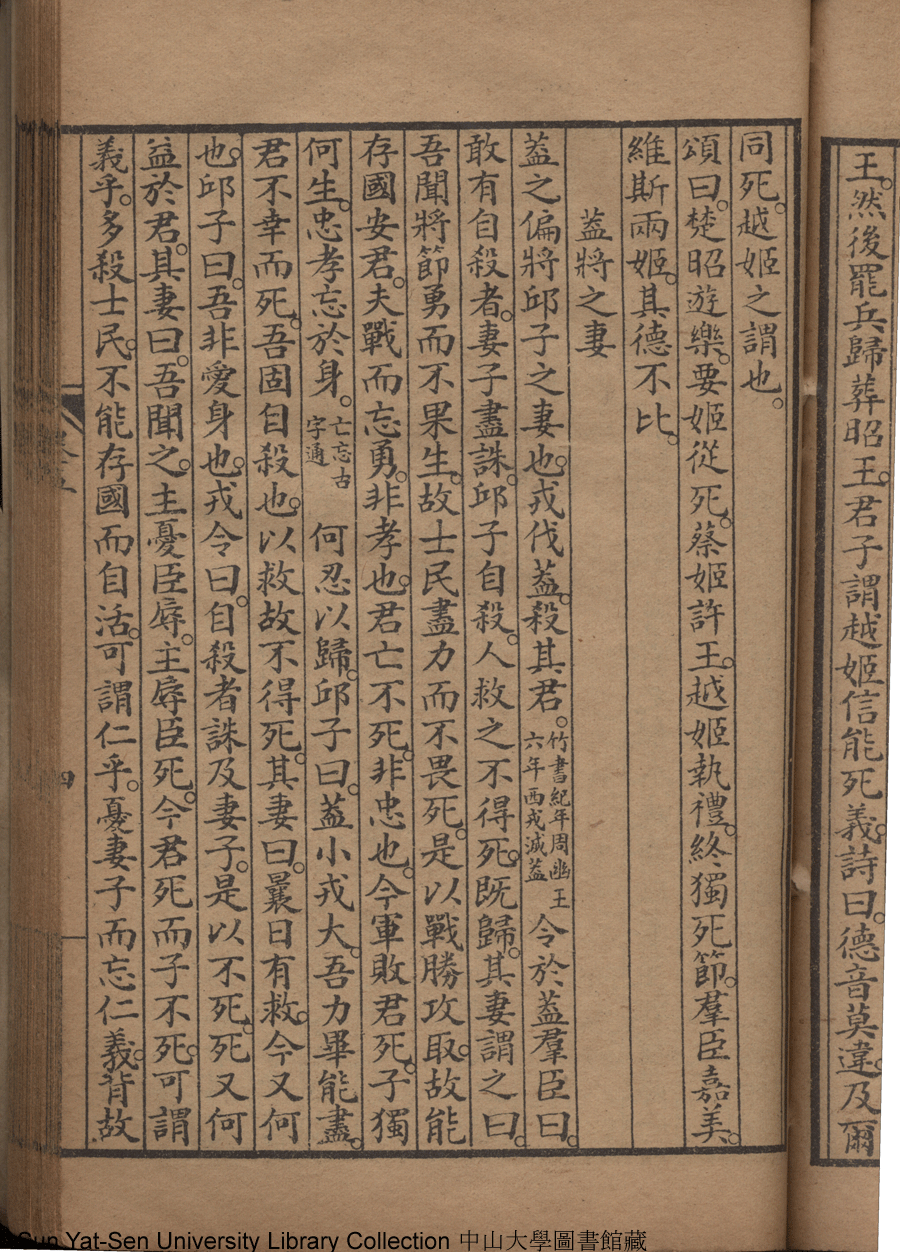 王。然後罷兵歸葬昭王。君子謂越姬信能死義。詩曰。德音莫違。及爾
同死。越姬之謂也。
頌曰。楚昭遊樂。要姬從死。蔡姬許王。越姬執禮。終獨死節。羣臣嘉美。
維斯兩姬。其德不比。
蓋將之妻
蓋之偏將邱子之妻也。戎伐蓋。殺其君。竹書紀年周幽王六年西戎滅蓋令於蓋羣臣曰。
敢有自殺者。妻子盡誅。邱子自殺。人救之不得死。既歸。其妻謂之曰。
吾聞將節勇而不果生。故士民盡力而不畏死。是以戰勝攻取。故能
存國安君。夫戰而忘勇。非孝也。君亡不死。非忠也。今軍敗君死。子獨
何生。忠孝忘於身。亡忘古字通 何忍以歸。邱子曰。蓋小戎大。吾力畢能盡。
君不幸而死。吾固自殺也。以救故不得死。其妻曰。曩日有救。今又何
也。邱子曰。吾非愛身也。戎令曰。自殺者誅及妻子。是以不死。死又何
益於君。其妻曰。吾聞之。主憂臣辱。主辱臣死。今君死而子不死。可謂
義乎。多殺士民。不能存國而自活。可謂仁乎。憂妻子而忘仁義。背故
四
Sun Yat-Sen University Library Collection 中山大學圖書館藏